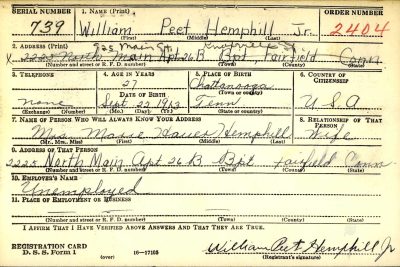 SERIAL NUMBER 1. NAME (Print) ORDER NUMBER
739 William Peet Hemphill Jr. 2404
(First) (Middle) (Last)
2. ADDRESS (Print)
925 Main St. Knoxville
x 2225 North Main Apt 26 B Bpt, Fairfield Conn
(Number and street or R. F. D. number) (Town) (County) (State)
3. TELEPHONE 4. AGE IN YEARS 5. PLACE OF BIRTH 6. COUNTRY OF CITIZENSHIP
27 Chattanooga
DATE OF BIRTH (Town or county)
None Sept 22 1913 Tenn U.S.A
(Exchange) (Number) (Mo.) (Day) (Yr.) (State or country)
7. NAME OF PERSON WHO WILL ALWAYS KNOW YOUR ADDRESS 8. RELATIONSHIP OF THAT PERSON
Mrs. Hemphill Wife
(Mr., Mrs., Miss) (First) (Middle) (Last)
9. ADDRESS OF THAT PERSON
2225 North Main Apt 26 B Bpt. Fairfield Conn
(Number and street or R. F. D. number) (Town) (County) (State)
10. EMPLOYER'S NAME
Unemployed
11. PLACE OF EMPLOYMENT OR BUSINESS
(Number and street or R. F. D. number) (Town) (County) (State)
I AFFIRM THAT I HAVE VERIFIED ABOVE ANSWERS AND THAT THEY ARE TRUE.
REGISTRATION CARD
D. S. S. Form 1 (over) 16—17105 William Peet Hemphill Jr
(Registrant's signature)